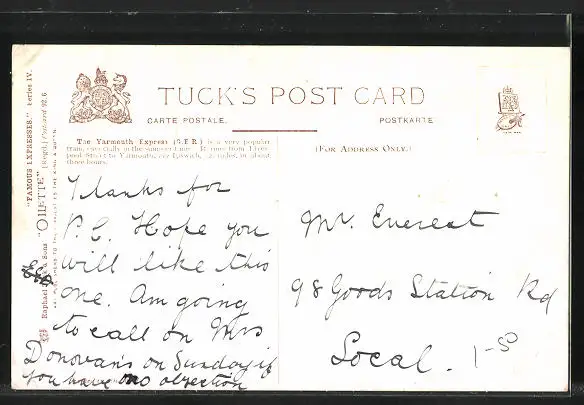 TUCK'S POST CARD
CARTE POSTALE.
POSTKARTE
The Yarmouth Express (G.E.R.) is a very popular
train, especially in the summer time. It runs from Liver-
pool Street to Yarmouth, via Ipswich, miles, in about
three hours.
(FOR ADDRESS ONLY.)
"FAMOUS EXPRESSES." Series IV.
Raphael Tuck & Sons "OILETTE" [Regd.] Postcard 9226
Thanks for
P.C. Hope you
will like this
one. Am going
to call on Mrs
Donovan's on Sunday if
you have no objection
Mr. Everest
98 Goods Station Rd
Local.